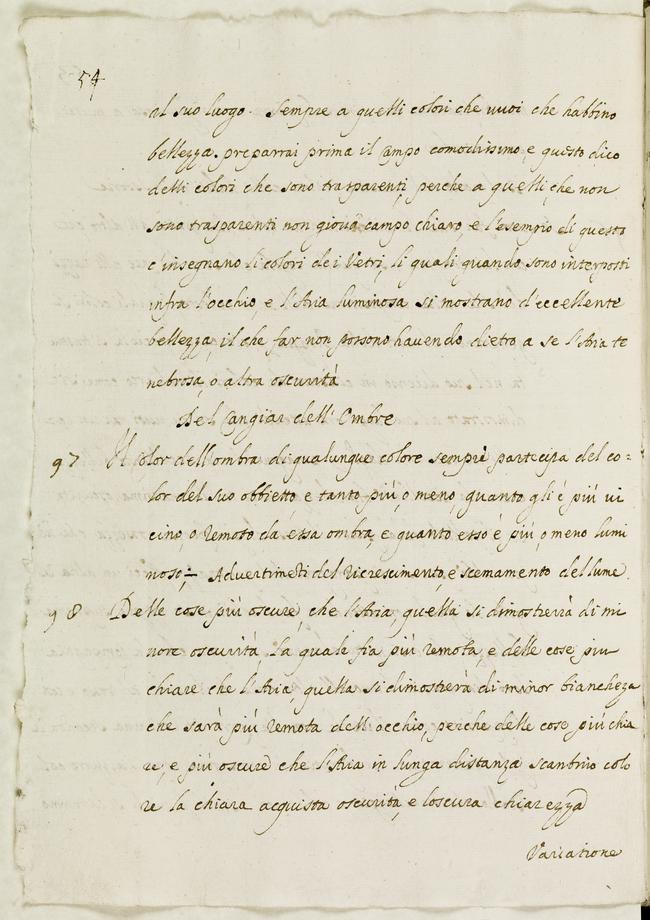 54
al suo luogo. Sempre a quelli colori che vuoi che habbino
bellezza, preparrai prima il campo comodissimo, e questo dico
delli colori che sono trasparenti, perche a quelli, che non
sono trasparenti non giova campo chiaro e l'esempio di questo
c'insegnano li colori dei Vetri, li quali quando sono interposti
infra l'occhio, e l'Aria luminosa si mostrano d'eccellente
bellezza, il che far non possono havendo dietro a se l'Aria te
nebrosa, o altra oscurità
Del Cangiar dell'Ombre
97 Il Color dell'ombra di qualunque colore sempre partecipa del co=
lor del suo obbietto, e tanto più, o meno, quanto gli è più vi
cino, o remoto da essa ombra, e quanto esso è più, o meno lumi
noso;— Advertimeti del ricrescimento, e scemamento del lume.
98 Delle cose più oscure, che l'Aria, quella si dimostrerà di mi
nore oscurità, la quale fia più remota, e delle cose piu
chiare che l'Aria, quella si dimostrerà di minor bianchezza
che sarà più remota dell'occhio, perche delle cose più chia
re, e più oscure che l'Aria in lunga distanza scanbrio colo
re la chiara acquista oscurità, e loscura chiarezza
Variatione